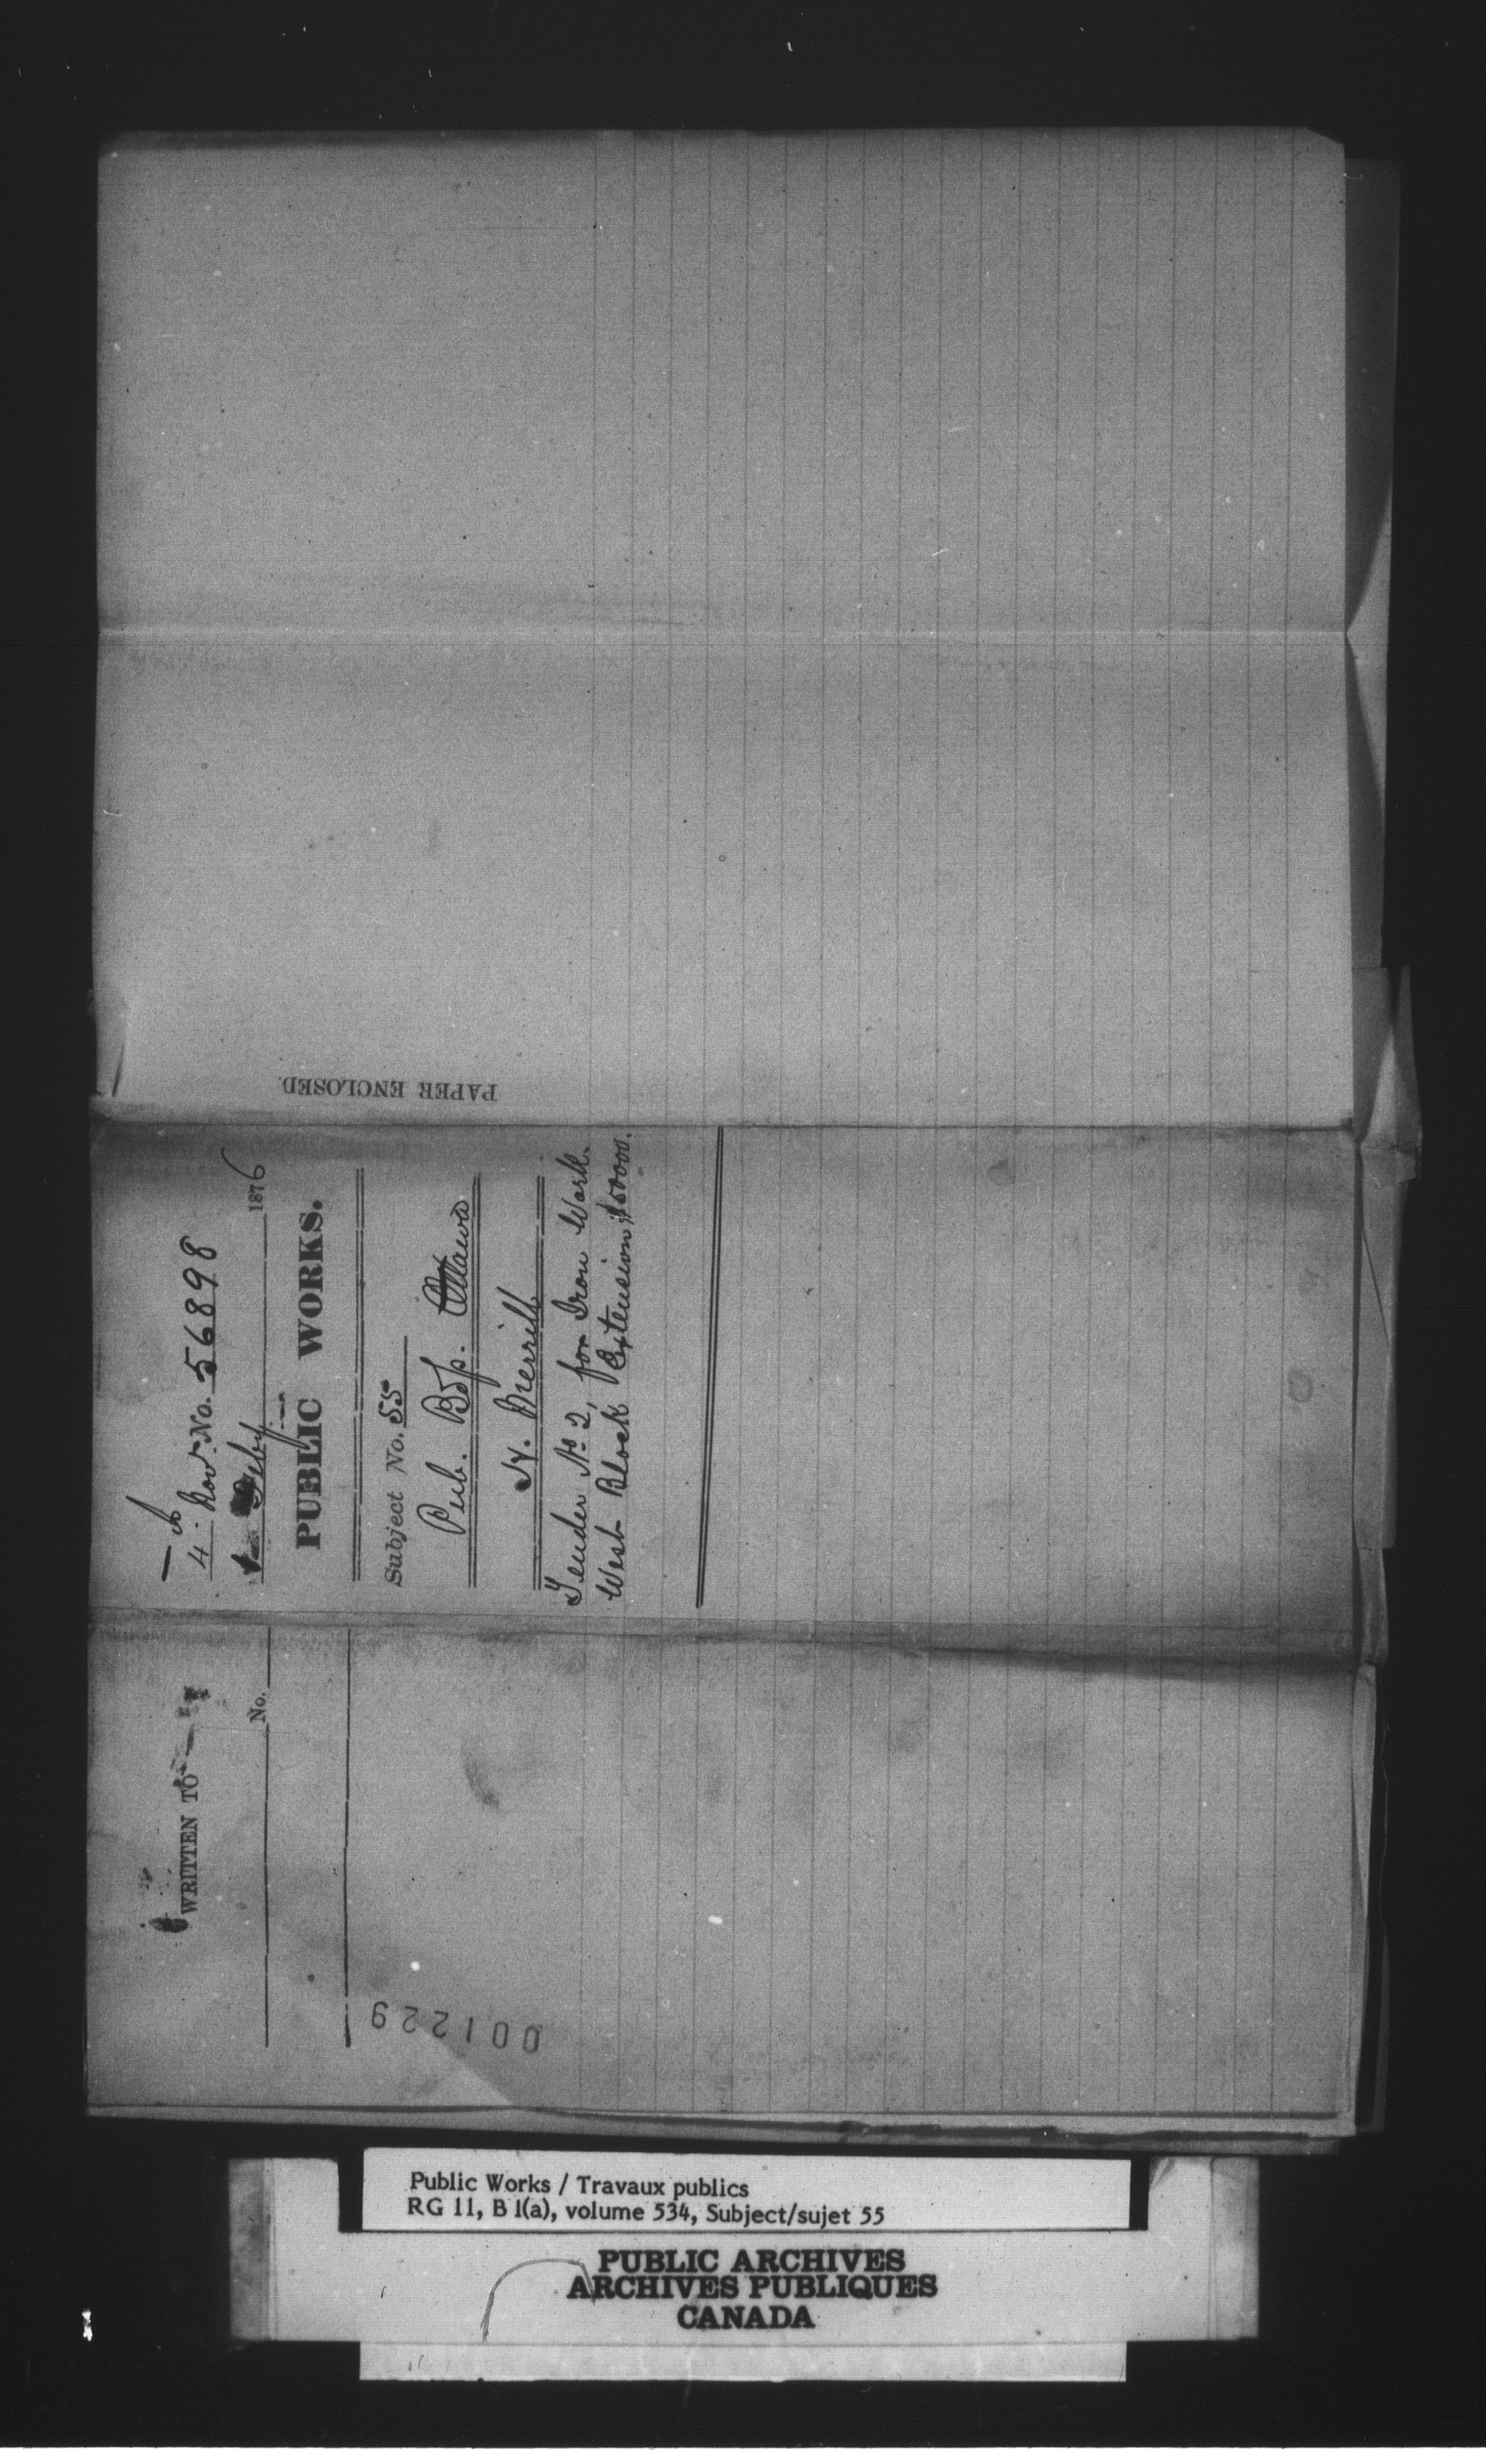 PAPER ENCLOSED.
4. Nov. No. 56898
Feby 1876
PUBLIC WORKS.
Subject No. 55
Pub. Bdgs. Ottawa
H. Merrill
Tender No 2, for Iron Work
West Block Extension
WRITTEN TO
No.
001229
Public Works / Travaux publics
RG 11, B 1(a), volume 534, Subject/sujet 55
PUBLIC ARCHIVES
ARCHIVES PUBLIQUES
CANADA